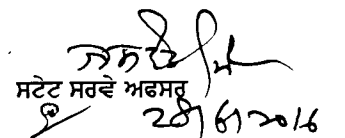 ਸਟੇਟ ਸਰਵੇ ਅਫਸਰ
28/6/2016